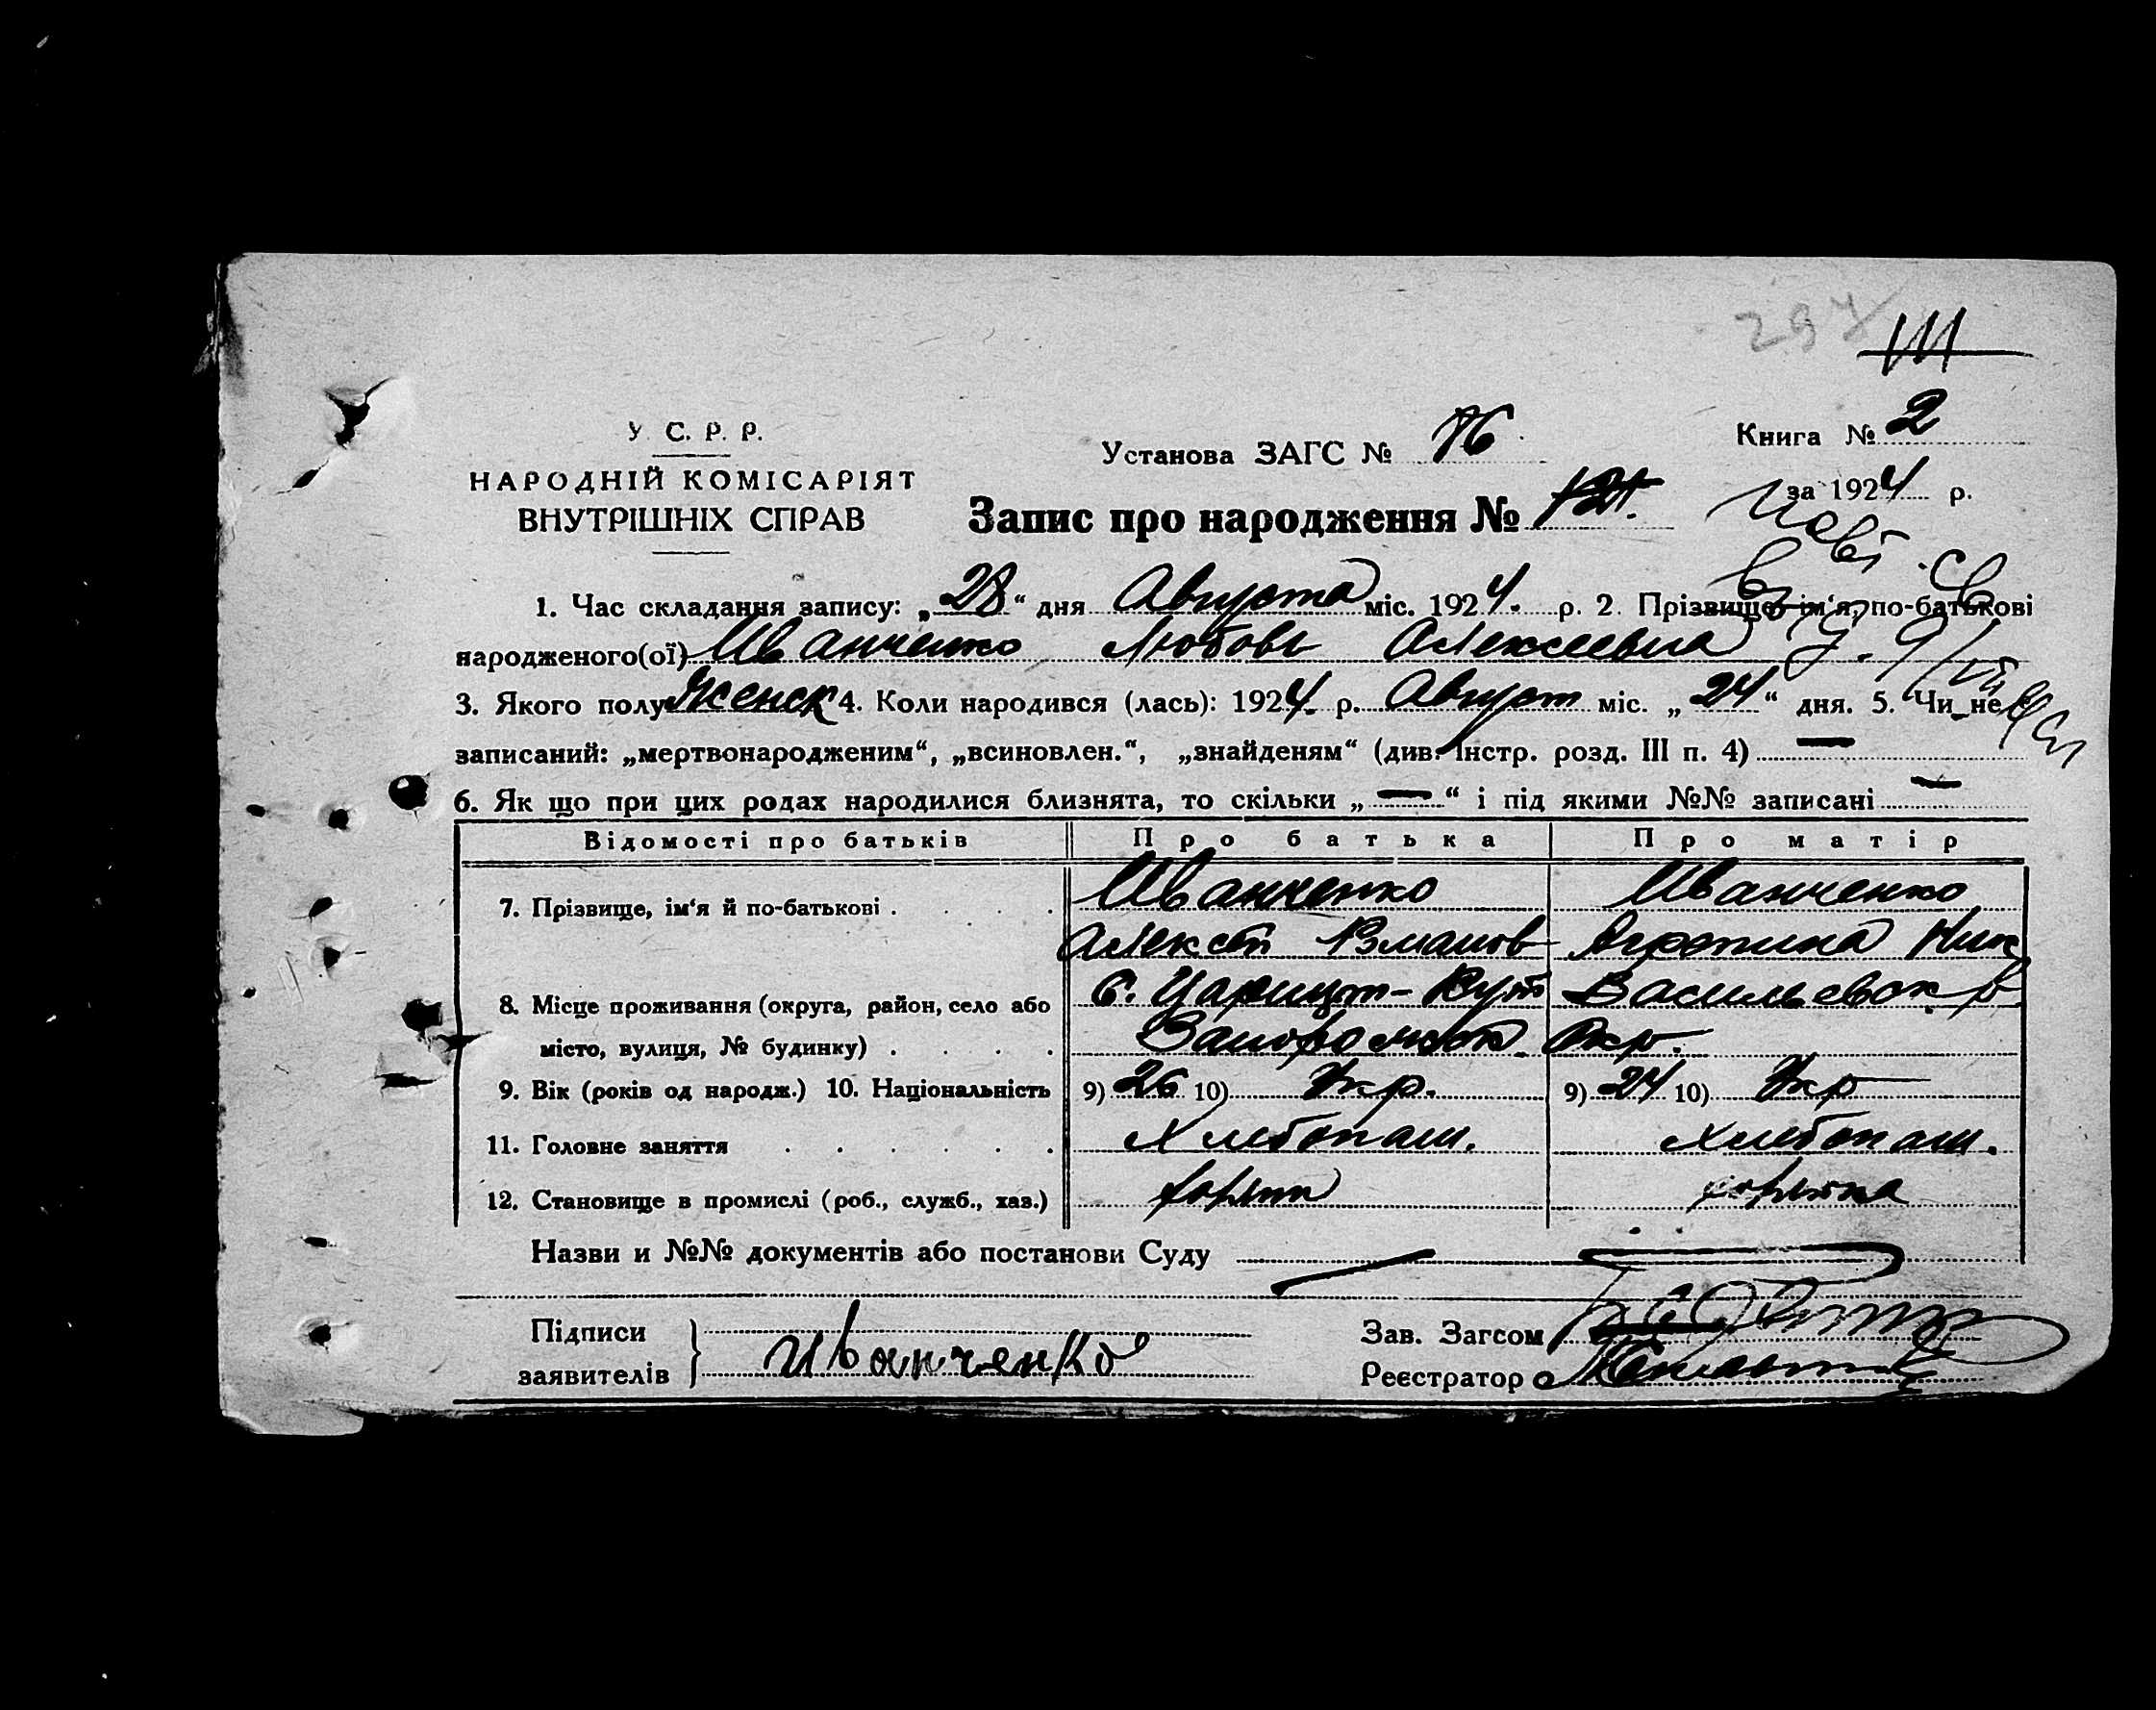 297
У. С. Р. Р.
НАРОДНІЙ КОМІСАРІЯТ
ВНУТРІШНІХ СПРАВ
Установа ЗАГС № 76
Книга № 2
за 1924 р.
Запис про народження №
1. Час складання запису: „28“ дня Августа міс. 1924. р. 2. Прізвище, ім‘я, по-батькові
народженого(ої) Иванченко Любовь Алексеевна
3. Якого полу женск 4. Коли народився (лась): 1924. р. Август міс. „24“ дня. 5. Чи не
записаний: „мертвонародженим“, „всиновлен.“, „знайденям“ (див. Інстр. розд. III п. 4) —
6. Як що при цих родах народилися близнята, то скільки „—“ і під якими №№ записані —
Відомості про батьків Про батька Про матір
7. Прізвище, ім‘я й по-батькові . . . . Иванченко Иванченко
Алексей
8. Місце проживання (округа, район, село або С. Царицын-Кут Васильевск р
місто, вулиця, № будинку) . . . . Запорожск. Окр.
9. Вік (років од народж.) 10. Національність 9) 26 10) Укр. 9) 24 10) Укр
11. Головне заняття . . . . . . Хлебопаш. хлебопаш.
12. Становище в промислі (роб., служб., хаз.)
Назви и №№ документів або постанови Суду
Підписи
заявителів } Иванченко
Зав. Загсом
Реєстратор